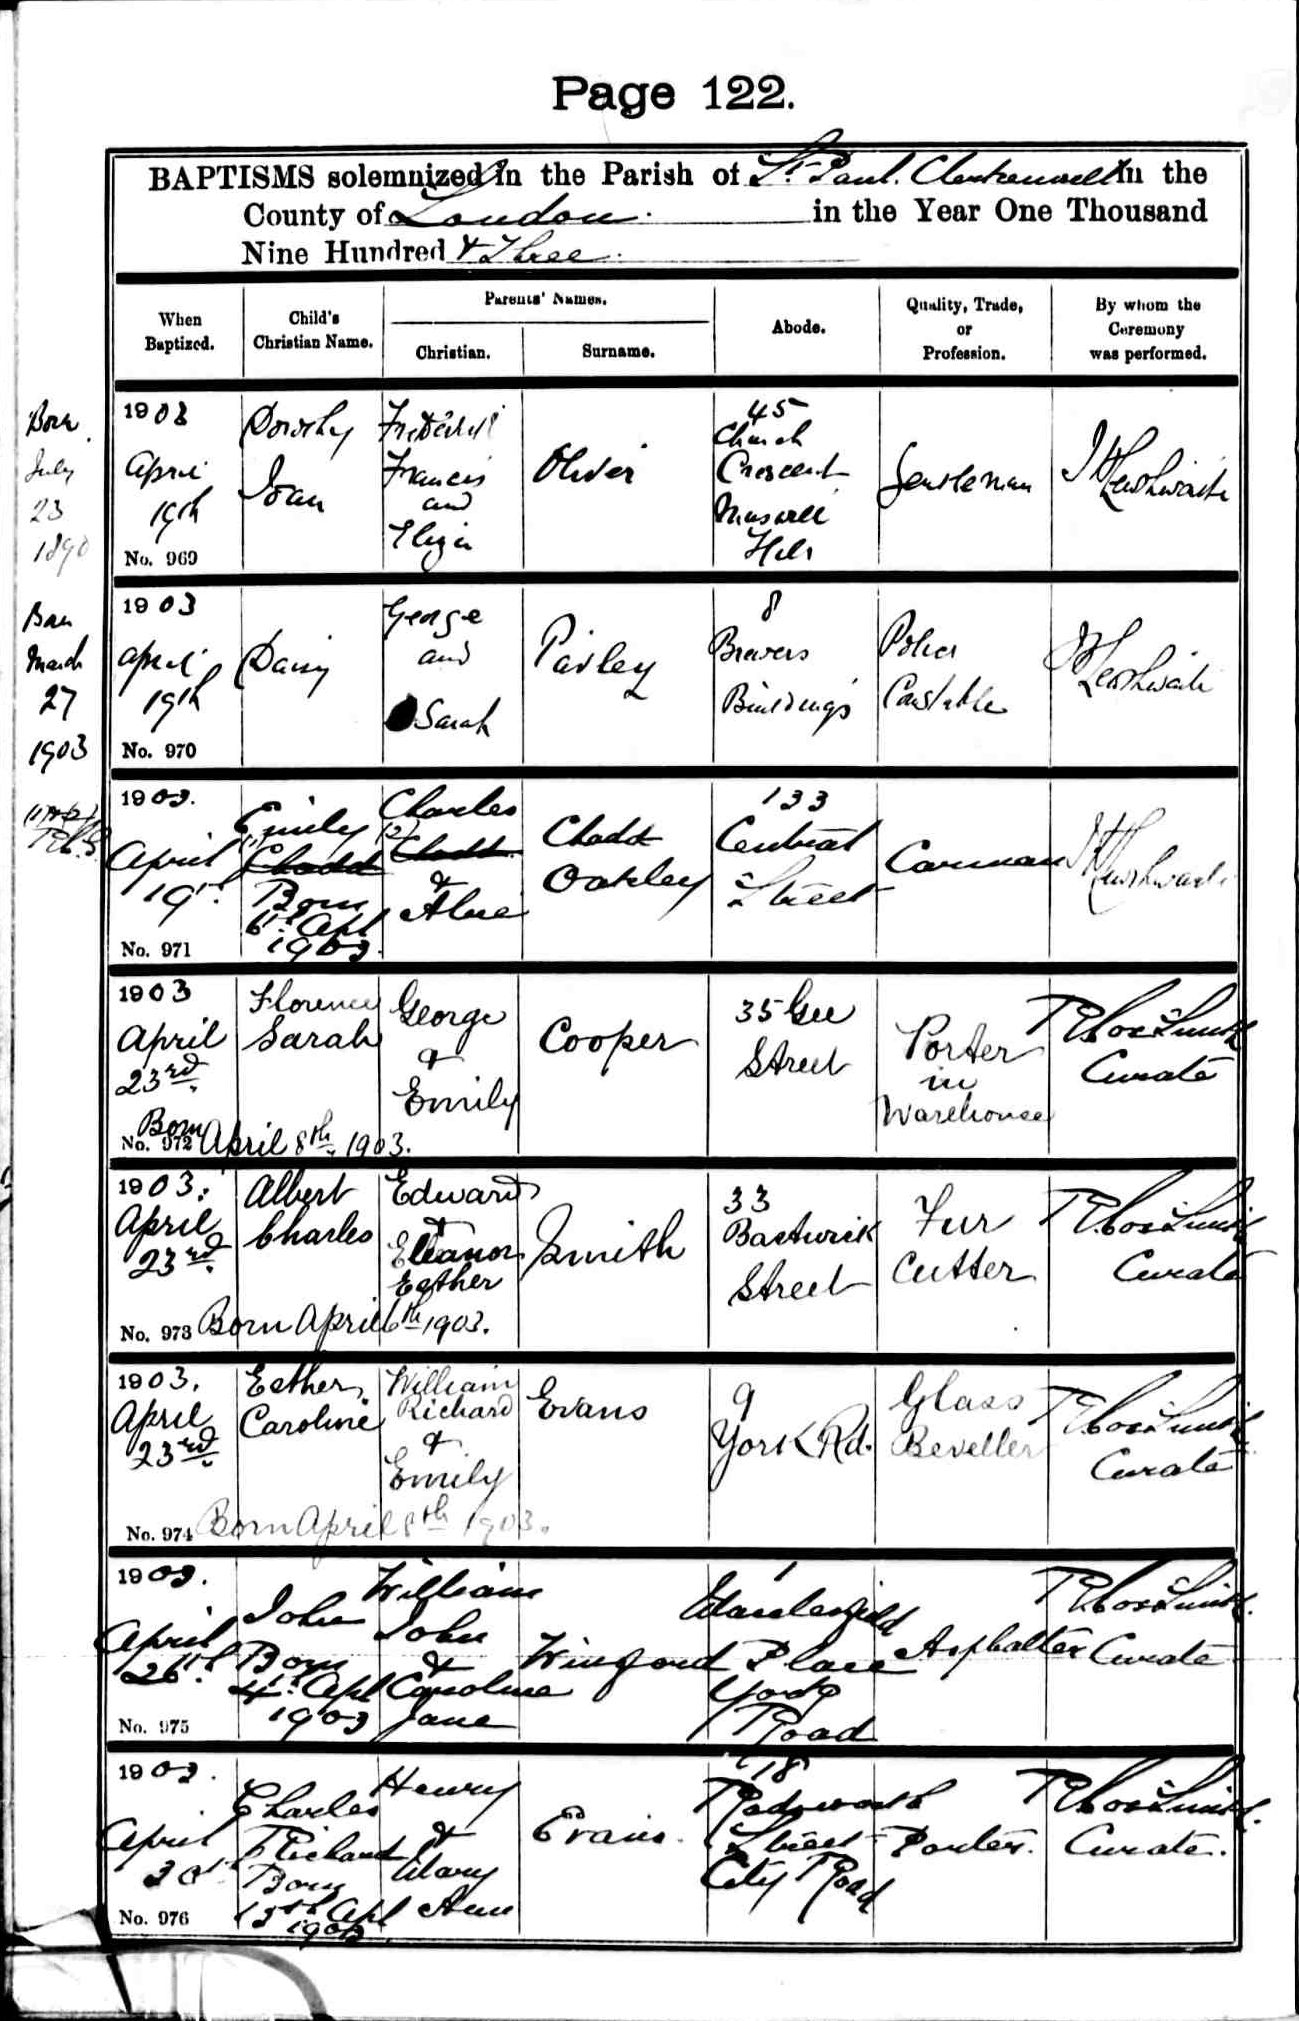 Page 122.
BAPTISMS solemnized in the Parish of St Paul. Clerkenwell in the
County of London. in the Year One Thousand
Nine Hundred & Three.
When Baptized.
Child's Christian Name.
Parents' Names.
Christian.
Surname.
Abode.
Quality, Trade, or Profession.
By whom the Ceremony was performed.
Born
July
23
1890
1903
April
19th
No. 969
Dorothy
Joan
Frederick
Francis
and
Eliza
Oliver
45
Church
Crescent
Muswell
Hill
Gentleman
Born
March
27
1903
1903
April
19th
No. 970
Daisy
George
and
Sarah
Pavley
8
Brewers
Buildings
Police
Constable
1903.
April
19th
No. 971
Emily
(1)
Chadd
Born
6th Apl
1903.
Charles
(2)
Chadd
&
Alice
Chadd
Oakley
133
Central
Street
Carman
1903
April
23rd
Born
No. 972 April 8th 1903.
Florence
Sarah
George
&
Emily
Cooper
35 Gee
Street
Porter
in
Warehouse
Curate
1903.
April
23rd
No. 973 Born April 6th 1903.
Albert
Charles
Edward
&
Eleanor
Esther
Smith
33
Bastwick
Street
Fur
Cutter
Curate
1903.
April
23rd
No. 974 Born April 8th 1903.
Esther
Caroline
William
Richard
&
Emily
Evans
9
York Rd.
Glass
Beveller
Curate
1903.
April
26th
No. 975
John
Born
4th Apl
1903
William
John
&
Caroline
Jane
Winford
1
Place
York
Road
Asphalter
Curate
1903.
April
30th
No. 976
Charles
Richard
Born
13th Apl
1903.
Henry
&
Mary
Ann
Evans.
18
Radnor
Street
City Road
Porter.
Curate.